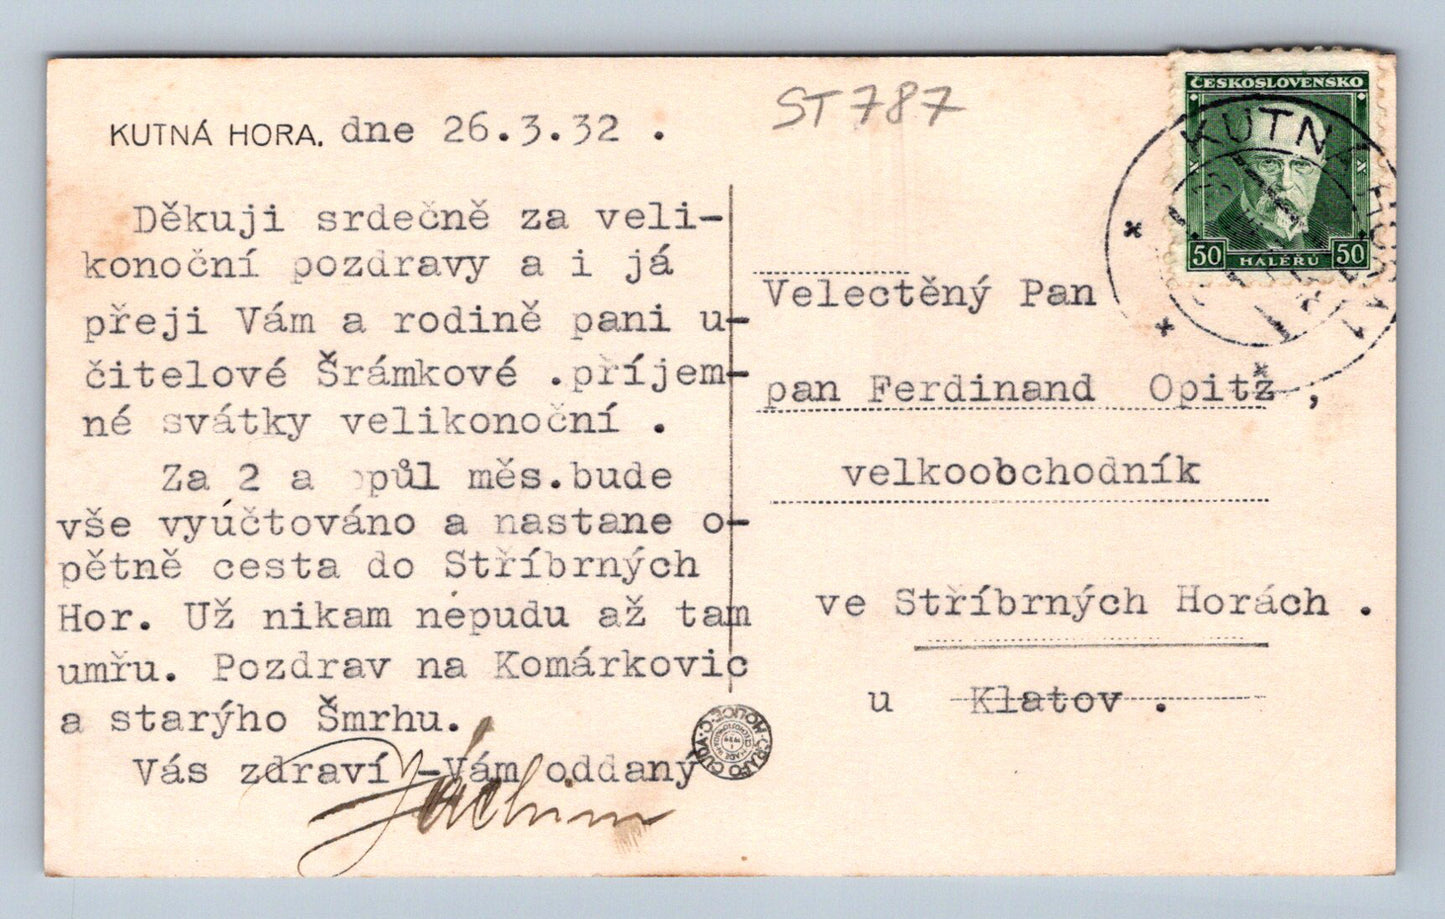 ST787
ČESKOSLOVENSKO
50 HALÉŘŮ 50
KUTNÁ HORA
KUTNÁ HORA. dne 26.3.32 .
Děkuji srdečně za veli-
konoční pozdravy a i já
přeji Vám a rodině pani u-
čitelové Šrámkové .příjem-
né svátky velikonoční .
Za 2 a půl měs.bude
vše vyúčtováno a nastane o-
pětně cesta do Stříbrných
Hor. Už nikam nepudu až tam
umřu. Pozdrav na Komárkovic
a starýho Šmrhu.
Vás zdraví -Vám oddaný
Jáchim
Velectěný Pan
pan Ferdinand Opitz ,
velkoobchodník
ve Stříbrných Horách .
u Klatov .